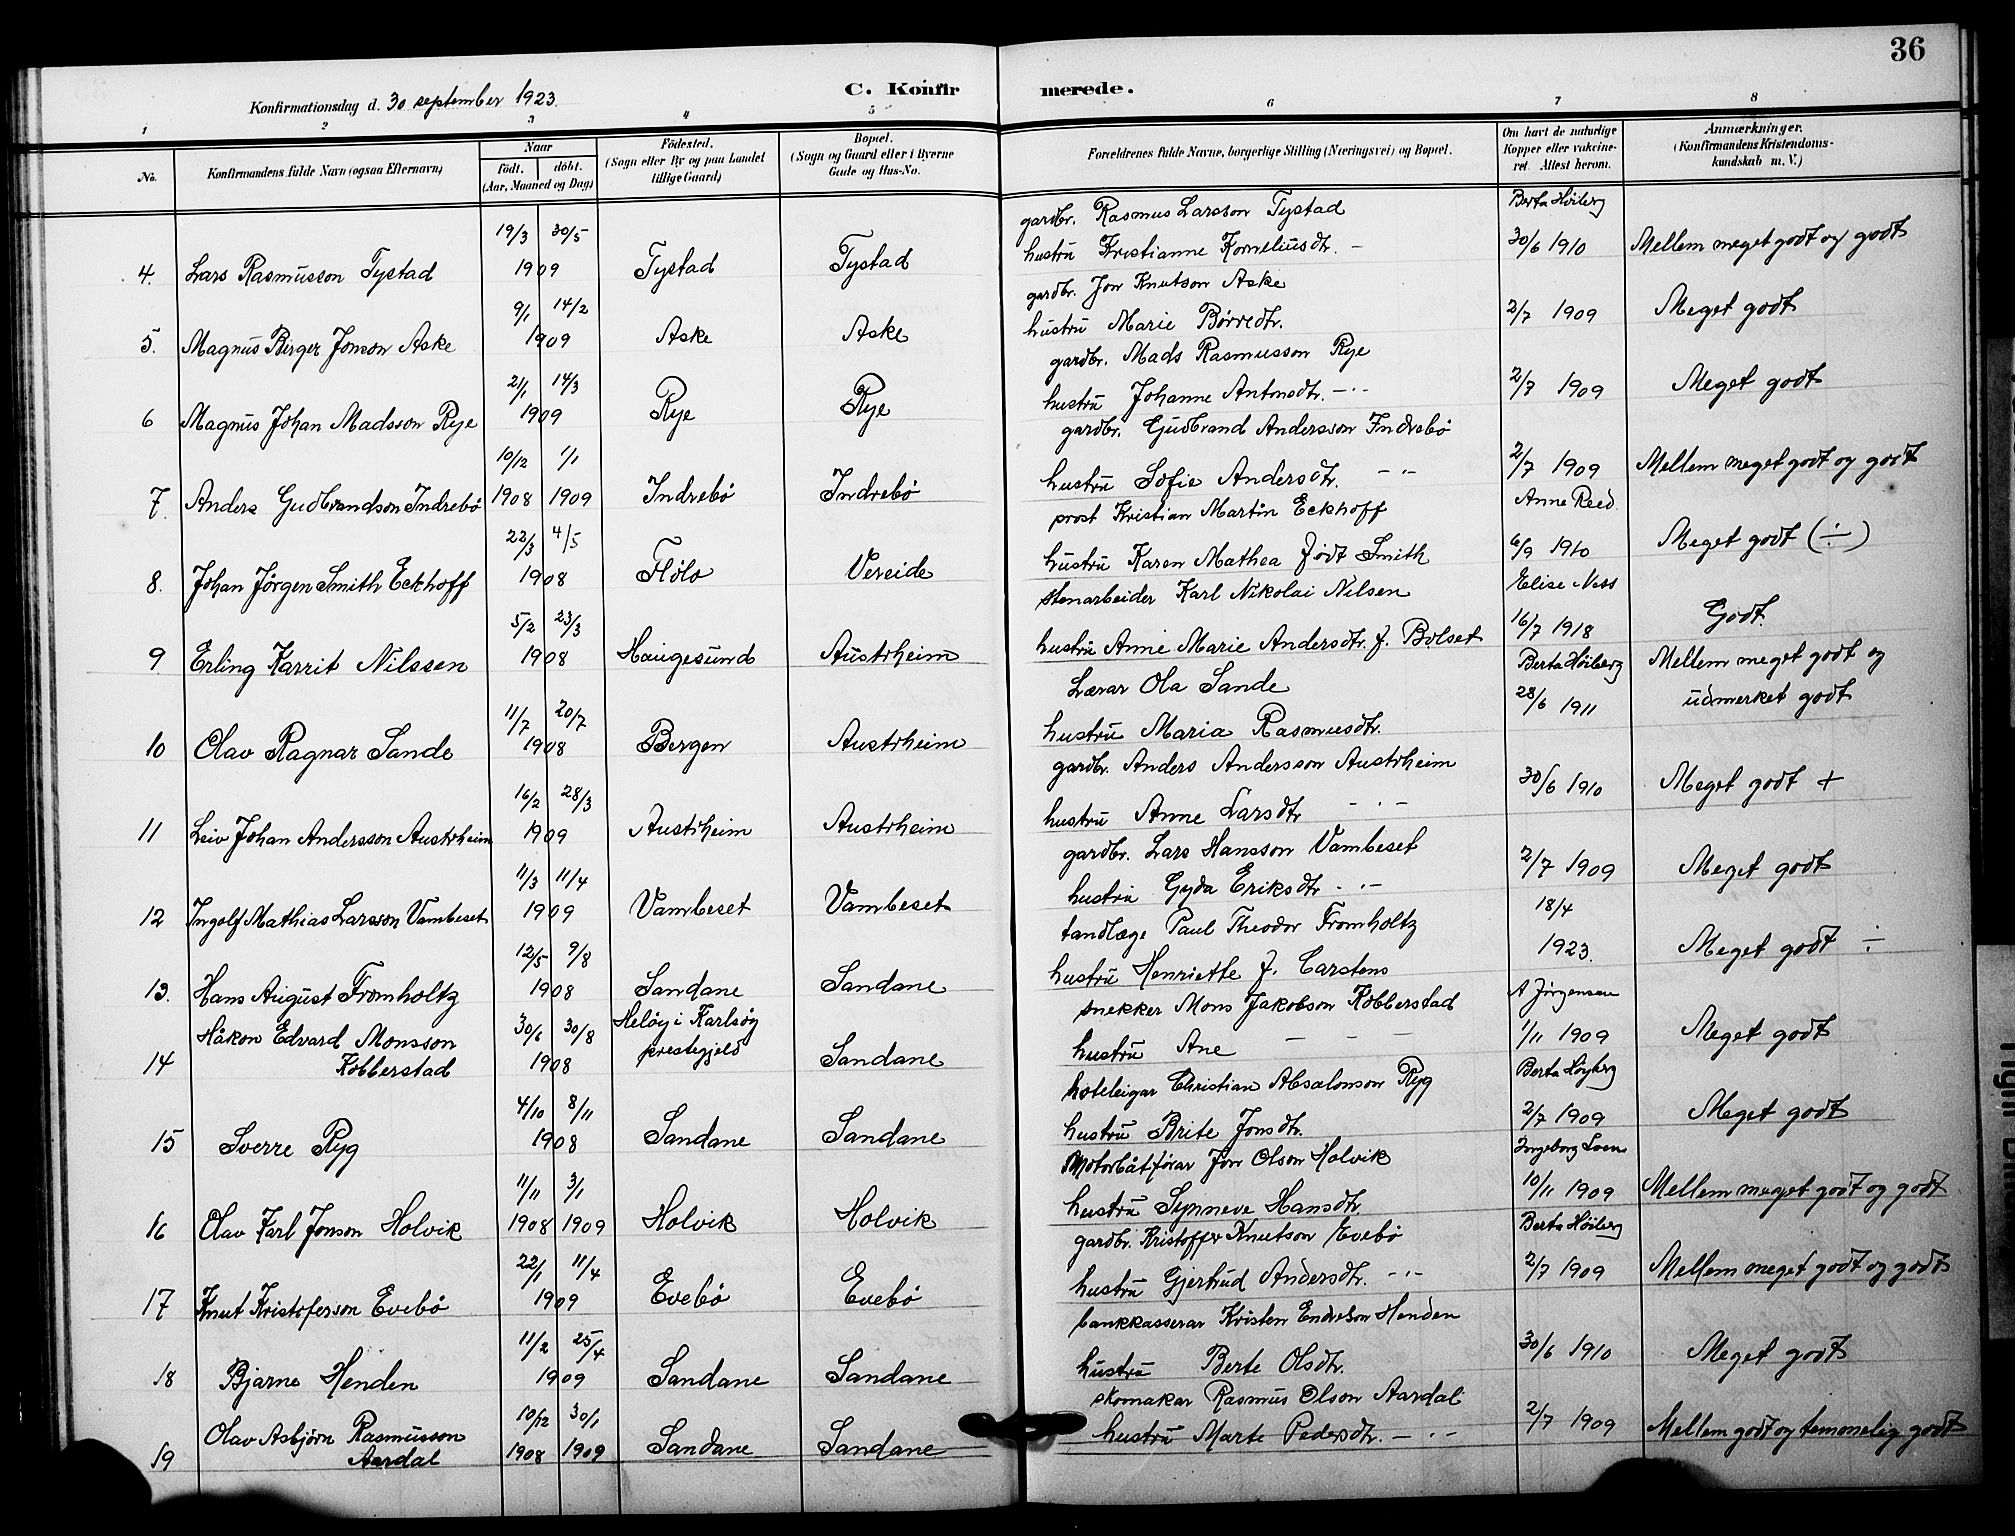 36
C. Konfirmerede.
Konfirmationsdag d. 30 september 1923.
1 2 3 4 5 6 7 8
No.
Konfirmandens fulde Navn (ogsaa Efternavn)
Naar
født. døbt.
(Aar, Maaned og Dag)
Fødested.
(Sogn eller By og paa Landet
tillige Gaard)
Bopæl.
(Sogn og Gaard eller i Byerne
Gade og Hus-No.
Forældrenes fulde Navne, borgerlige Stilling (Næringsvei) og Bopæl.
Om havt de naturlige
Kopper eller vakcine-
ret. Attest herom.
Anmærkninger.
(Konfirmandens Kristendoms-
kundskab m. V.)
gardbr. Rasmus Larsson Tystad Berta Höiberg
19/3 30/5 hustru Kristianne Korneliusdtr. - 30/6 1910 Mellem meget godt og godt
4. Lars Rasmusson Tystad 1909 Tystad Tystad
gardbr. Jon Knutson Aske
9/1 14/2 hustru Marie Börredtr. 2/7 1909 Meget godt
5. Magnus Birger Jonson Aske 1909 Aske Aske
gardbr. Mads Rasmusson Rye
21/1 14/3 hustru Johanne Antonsdtr. -"- 2/7 1909 Meget godt
6 Magnus Johan Madsson Rye 1909 Rye Rye
gardbr. Gudbrand Andersson Indrebö
10/12 1/1 hustru Sofie Andersdtr. -"- 2/7 1909 Mellem meget godt og godt
7. Anders Gudbrandson Indrebö 1908 1909 Indrebö Indrebö
prost Kristian Martin Eckhoff Anne Reed
22/3 4/5 hustru Karen Mathea født Smith 6/9 1910 Meget godt (÷)
8. Johan Jörgen Smith Eckhoff 1908 Flölo Vereide
stenarbeider Karl Nikolai Nilsen Elise Ness
5/2 23/3 hustru Anne Marie Andersdtr. f. Bolset 16/7 1918 Godt.
9 Erling Karrit Nilssen 1908 Haugesund Austrheim
Lærar Ola Sande Berta Höiberg Mellem meget godt og
11/7 20/7 hustru Maria Rasmusdtr. 28/6 1911 udmerket godt
10 Olav Ragnar Sande 1908 Bergen Austrheim
gardbr. Anders Andersson Austrheim
16/2 28/3 hustru Anne Larsdtr -"- 30/6 1910 Meget godt +
11 Leiv Johan Andersson Austrheim 1909 Austrheim Austrheim
gardbr. Lars Hansson Vambeset
11/3 11/4 hustru Gyda Eriksdtr -"- 2/7 1909 Meget godt
12 Ingolf Mathias Larsson Vambeset 1909 Vambeset Vambeset
tandlæge Paul Theodor Fromholtz 18/4
12/5 9/8 hustru Henriette f. Carstens 1923. Meget godt ÷
13. Hans August Fromholtz 1908 Sandane Sandane
snekker Mons Jakobson Kobberstad A Jörgensen
Håkon Edvard Monsson 30/6 30/8 Helöy i Karlsöy
hustru Ane - - 1/11 1909 Meget godt
14 Kobberstad 1908 prestegjeld Sandane
hoteleigar Christian Absalonson Ryg Berta Höyberg
4/10 8/11 hustru Brite Jonsdtr. 2/7 1909 Meget godt
15 Sverre Ryg 1908 Sandane Sandane
Motorbåtförar Jon Olson Holvik Ingeborg Loen
11/11 3/1 hustru Synneve Hansdtr 10/11 1909 Mellem meget godt og godt
16 Olav Karl Jonson Holvik 1908 1909 Holvik Holvik
gardbr. Kristoffer Knutson Evebö Berta Höiberg
22/1 11/4 hustru Gjertrud Andersdtr. -"- 2/7 1909 Mellem meget godt og godt
17 Knut Kristoferson Evebö 1909 Evebö Evebö
bankkasserar Kristen Endreson Henden
11/2 25/4 hustru Berte Olsdtr. 30/6 1910 Meget godt
18 Bjarne Henden 1909 Sandane Sandane
skomakar Rasmus Olson Aardal
Olav Asbjörn Rasmusson 10/12 30/1 hustru Marte Pedersdtr. -"- 2/7 1909 Mellem godt og temmelig godt
19 Aardal 1908 1909 Sandane Sandane